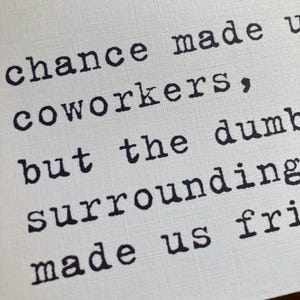 chance made u
coworkers,
but the dumb
surrounding
made us fri